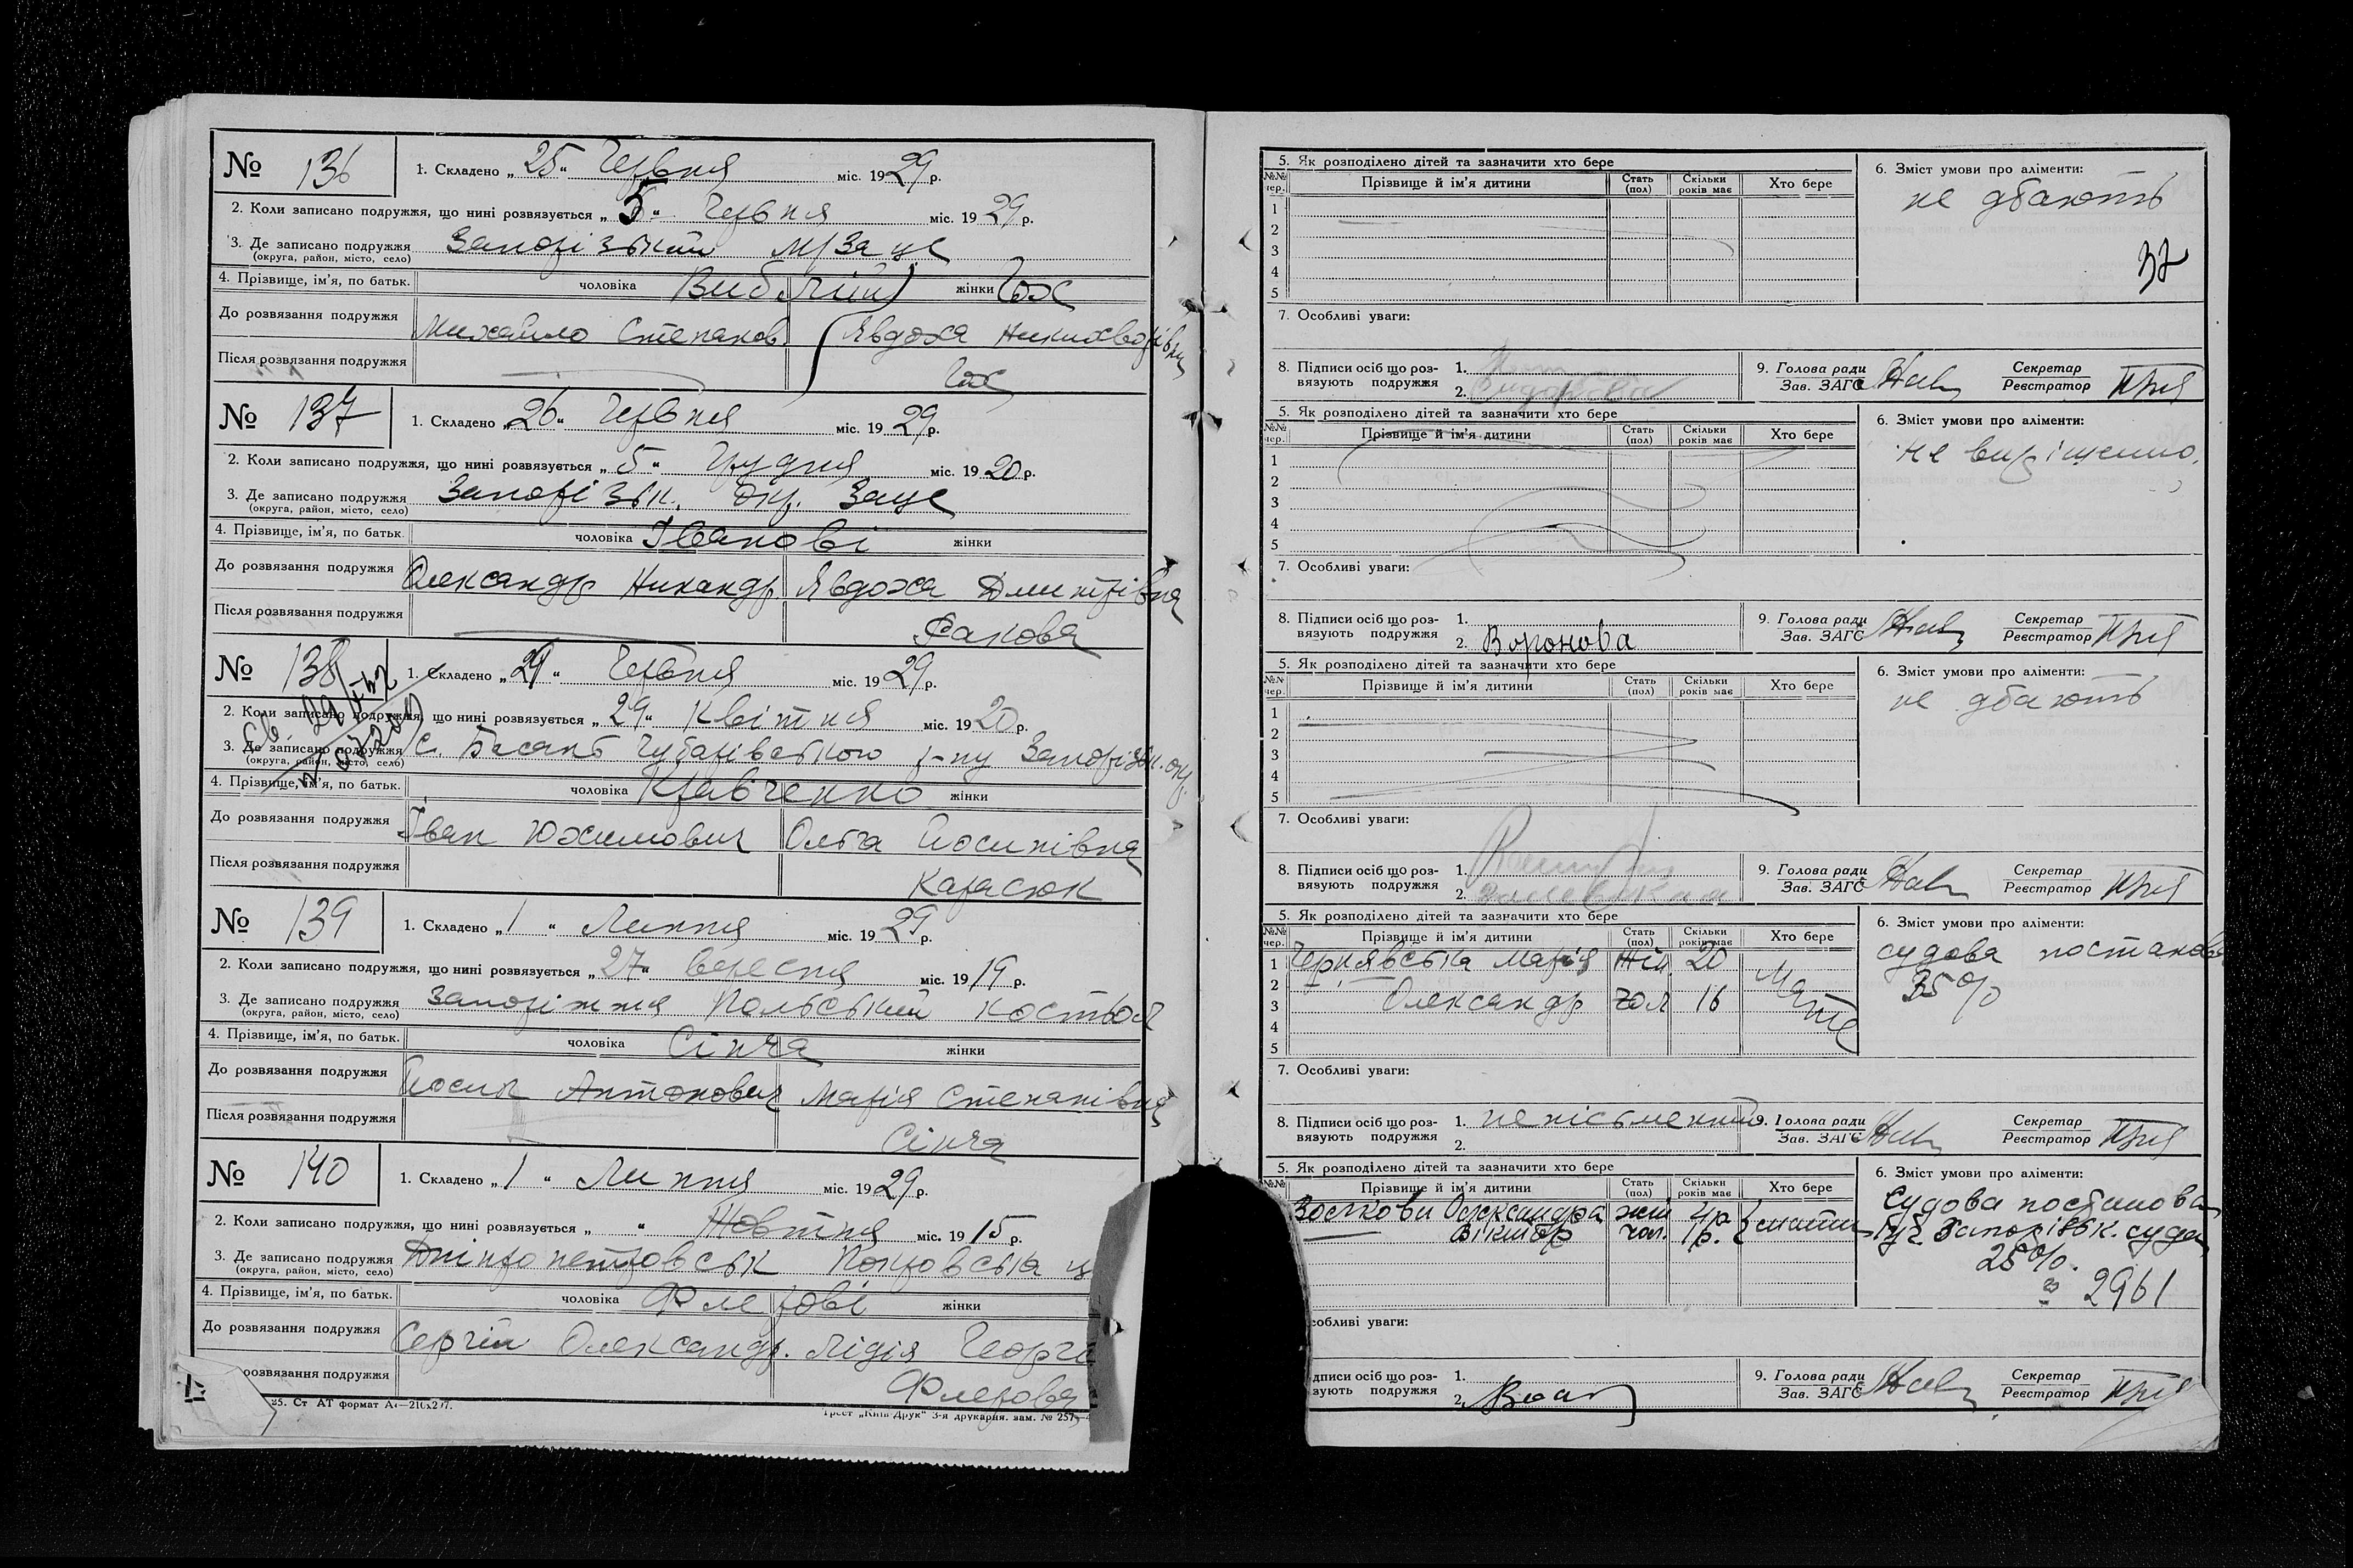 № 136
1. Складено „25“ Червня міс. 1929 р.
2. Коли записано подружжя, що нині розвязується „5“ Червня міс. 1929 р.
3. Де записано подружжя Запорізький М/Загс
(округа, район, місто, село)
4. Прізвище, ім'я, по батьк. чоловіка жінки
До розвязання подружжя Михайло Степанов. Явдоха
Після розвязання подружжя
№ 137
1. Складено „26“ Червня міс. 1929 р.
2. Коли записано подружжя, що нині розвязується „5“ Грудня міс. 1920 р.
3. Де записано подружжя Запорізьк. Окр. Загс
(округа, район, місто, село)
4. Прізвище, ім'я, по батьк. чоловіка Іванові жінки
До розвязання подружжя Олександр Никандр Явдоха Дмитрівна
Після розвязання подружжя
№ 138
1. Складено „29“ Червня міс. 1929 р.
2. Коли записано подружжя, що нині розвязується „29“ Квітня міс. 1920 р.
3. Де записано подружжя С. Чубарівського р-ну Запорізьк. окр.
(округа, район, місто, село)
4. Прізвище, ім'я, по батьк. чоловіка Кравченко жінки
До розвязання подружжя Іван Юхимович Ольга Йосипівна
Після розвязання подружжя Карасюк
№ 139
1. Складено „1“ Липня міс. 1929 р.
2. Коли записано подружжя, що нині розвязується „27“ вересня міс. 1919 р.
3. Де записано подружжя Запоріжжя Польський костьол
(округа, район, місто, село)
4. Прізвище, ім'я, по батьк. чоловіка Сінча жінки
До розвязання подружжя Йосип Антонович Марія Степанівна
Після розвязання подружжя Сінча
№ 140
1. Складено „1“ Липня міс. 1929 р.
2. Коли записано подружжя, що нині розвязується „ “ Жовтня міс. 1915 р.
3. Де записано подружжя Дніпропетровськ Покровська ц
(округа, район, місто, село)
4. Прізвище, ім'я, по батьк. чоловіка Флерові жінки
До розвязання подружжя Сергій Олександр. Лідія Георгі
розвязання подружжя Флерова
25. Ст АТ формат А4—210х297.
Трест „Київ Друк“ 3-я друкарня. зам. № 257
5. Як розподілено дітей та зазначити хто бере
№№ чер. Прізвище й ім'я дитини Стать (пол) Скільки років має Хто бере
1
2
3
4
5
6. Зміст умови про аліменти:
не дбають
37
7. Особливі уваги:
8. Підписи осіб що розвязують подружжя 1.
2.
9. Голова ради
Зав. ЗАГС
Секретар
Реєстратор
5. Як розподілено дітей та зазначити хто бере
№№ чер. Прізвище й ім'я дитини Стать (пол) Скільки років має Хто бере
1
2
3
4
5
6. Зміст умови про аліменти:
не вирішенно.
7. Особливі уваги:
8. Підписи осіб що розвязують подружжя 1.
2. Воронова
9. Голова ради
Зав. ЗАГС
Секретар
Реєстратор
5. Як розподілено дітей та зазначити хто бере
№№ чер. Прізвище й ім'я дитини Стать (пол) Скільки років має Хто бере
1
2
3
4
5
6. Зміст умови про аліменти:
не дбають
7. Особливі уваги:
8. Підписи осіб що розвязують подружжя 1.
2.
9. Голова ради
Зав. ЗАГС
Секретар
Реєстратор
5. Як розподілено дітей та зазначити хто бере
№№ чер. Прізвище й ім'я дитини Стать (пол) Скільки років має Хто бере
1 Чернявська Марія жін 20 Мати
2
3 Олександр чол 16
4
5
6. Зміст умови про аліменти:
судова постанова
35%
7. Особливі уваги:
8. Підписи осіб що розвязують подружжя 1. непісьменний
2.
9. Голова ради
Зав. ЗАГС
Секретар
Реєстратор
5. Як розподілено дітей та зазначити хто бере
№№ Прізвище й ім'я дитини Стать (пол) Скільки років має Хто бере
Волкови Олександра жін 4р. мати
Віктор чол. 1р.
6. Зміст умови про аліменти:
Судова постанова
Запорізьк. суда
25%.
2961
собливі уваги:
дписи осіб що роззують подружжя 1.
2.
9. Голова ради
Зав. ЗАГС
Секретар
Реєстратор